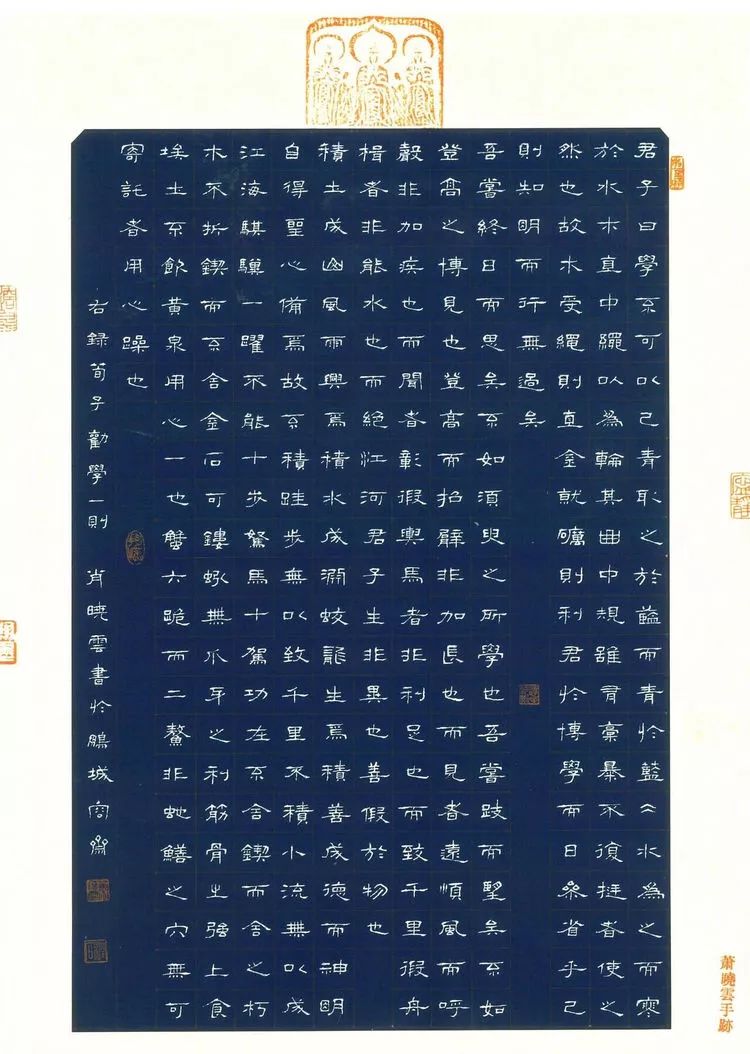 君子曰學不可以已青取之於藍而青於藍冰水為之而寒
於水木直中繩以為輪其曲中規雖有槀暴不復挺者使之
然也故木受繩則直金就礪則利君於博學而日參省乎己
則知明而行無過矣
吾嘗終日而思矣不如須臾之所學也吾嘗跂而望矣不如
登高之博見也登高而招臂非加長也而見者遠順風而呼
聲非加疾也而聞者彰假輿馬者非利足也而致千里假舟
楫者非能水也而絕江河君子生非異也善假於物也
積土成山風雨興焉積水成淵蛟龍生焉積善成德而神明
自得聖心備焉故不積跬步無以致千里不積小流無以成
江海騏驥一躍不能十步駑馬十駕功在不舍鍥而舍之朽
木不折鍥而不舍金石可鏤蚓無爪牙之利筋骨之強上食
埃土下飲黃泉用心一也蟹六跪而二螯非蛇鱔之穴無可
寄託者用心躁也
右錄荀子勸學一則 肖曉雲書於鵬城容齋
蕭曉雲手跡